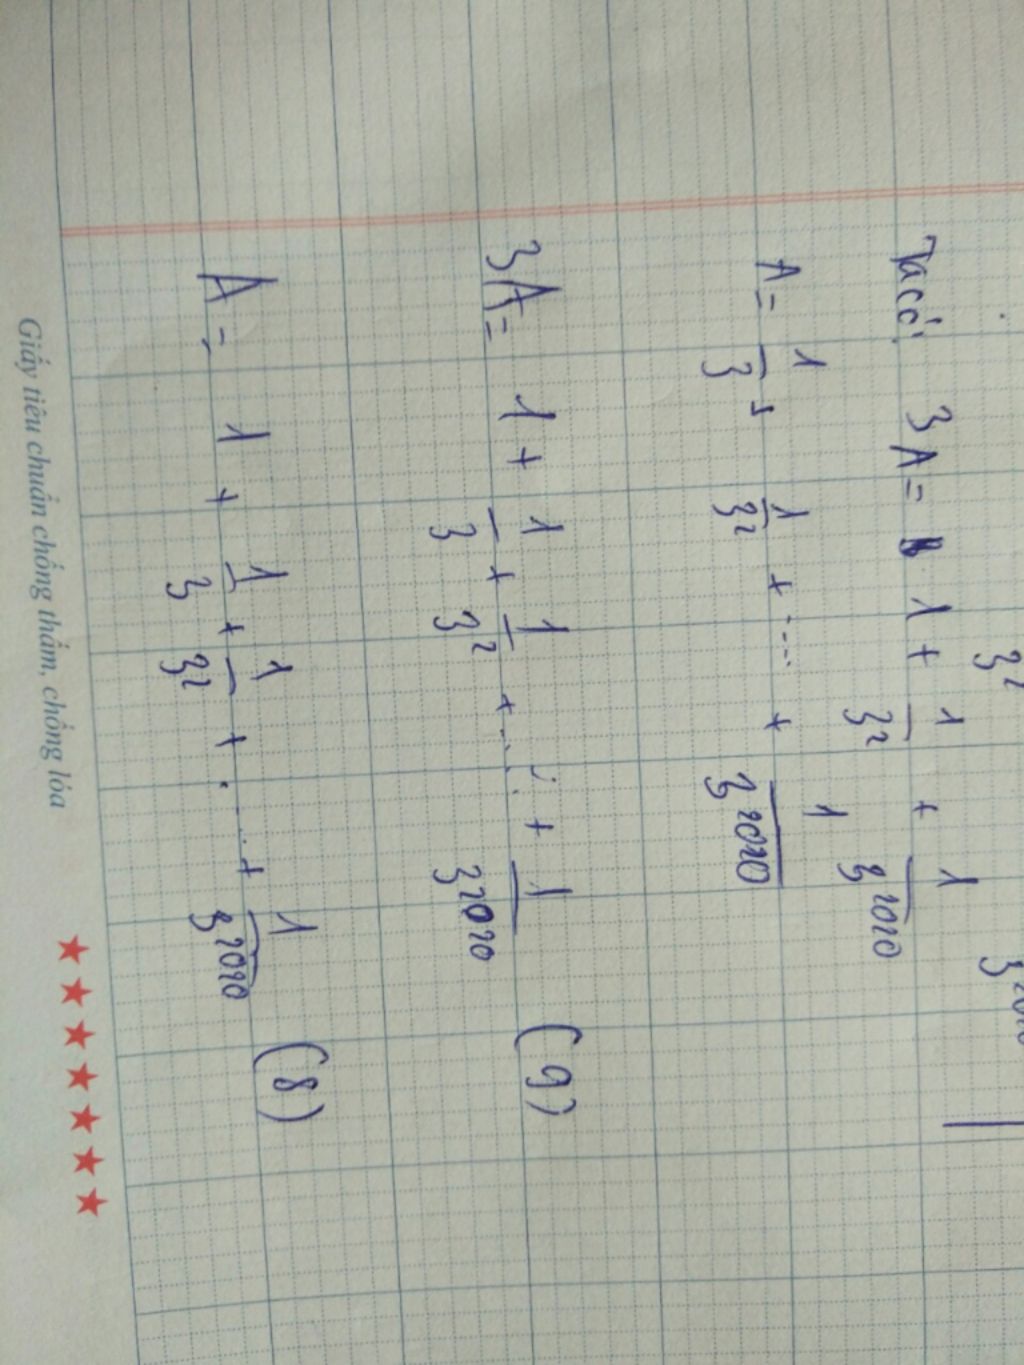 3² 3²⁰²⁰
Ta có: 3A = 1 + 1/3² + 1/3²⁰²⁰
A = 1/3 + 1/3² + ... + 1/3²⁰²⁰
3A = 1 + 1/3 + 1/3² + ... + 1/3²⁰²⁰ (9)
A = 1 + 1/3 + 1/3² + ... + 1/3²⁰²⁰ (8)
Giấy tiêu chuẩn chống thấm, chống lóa